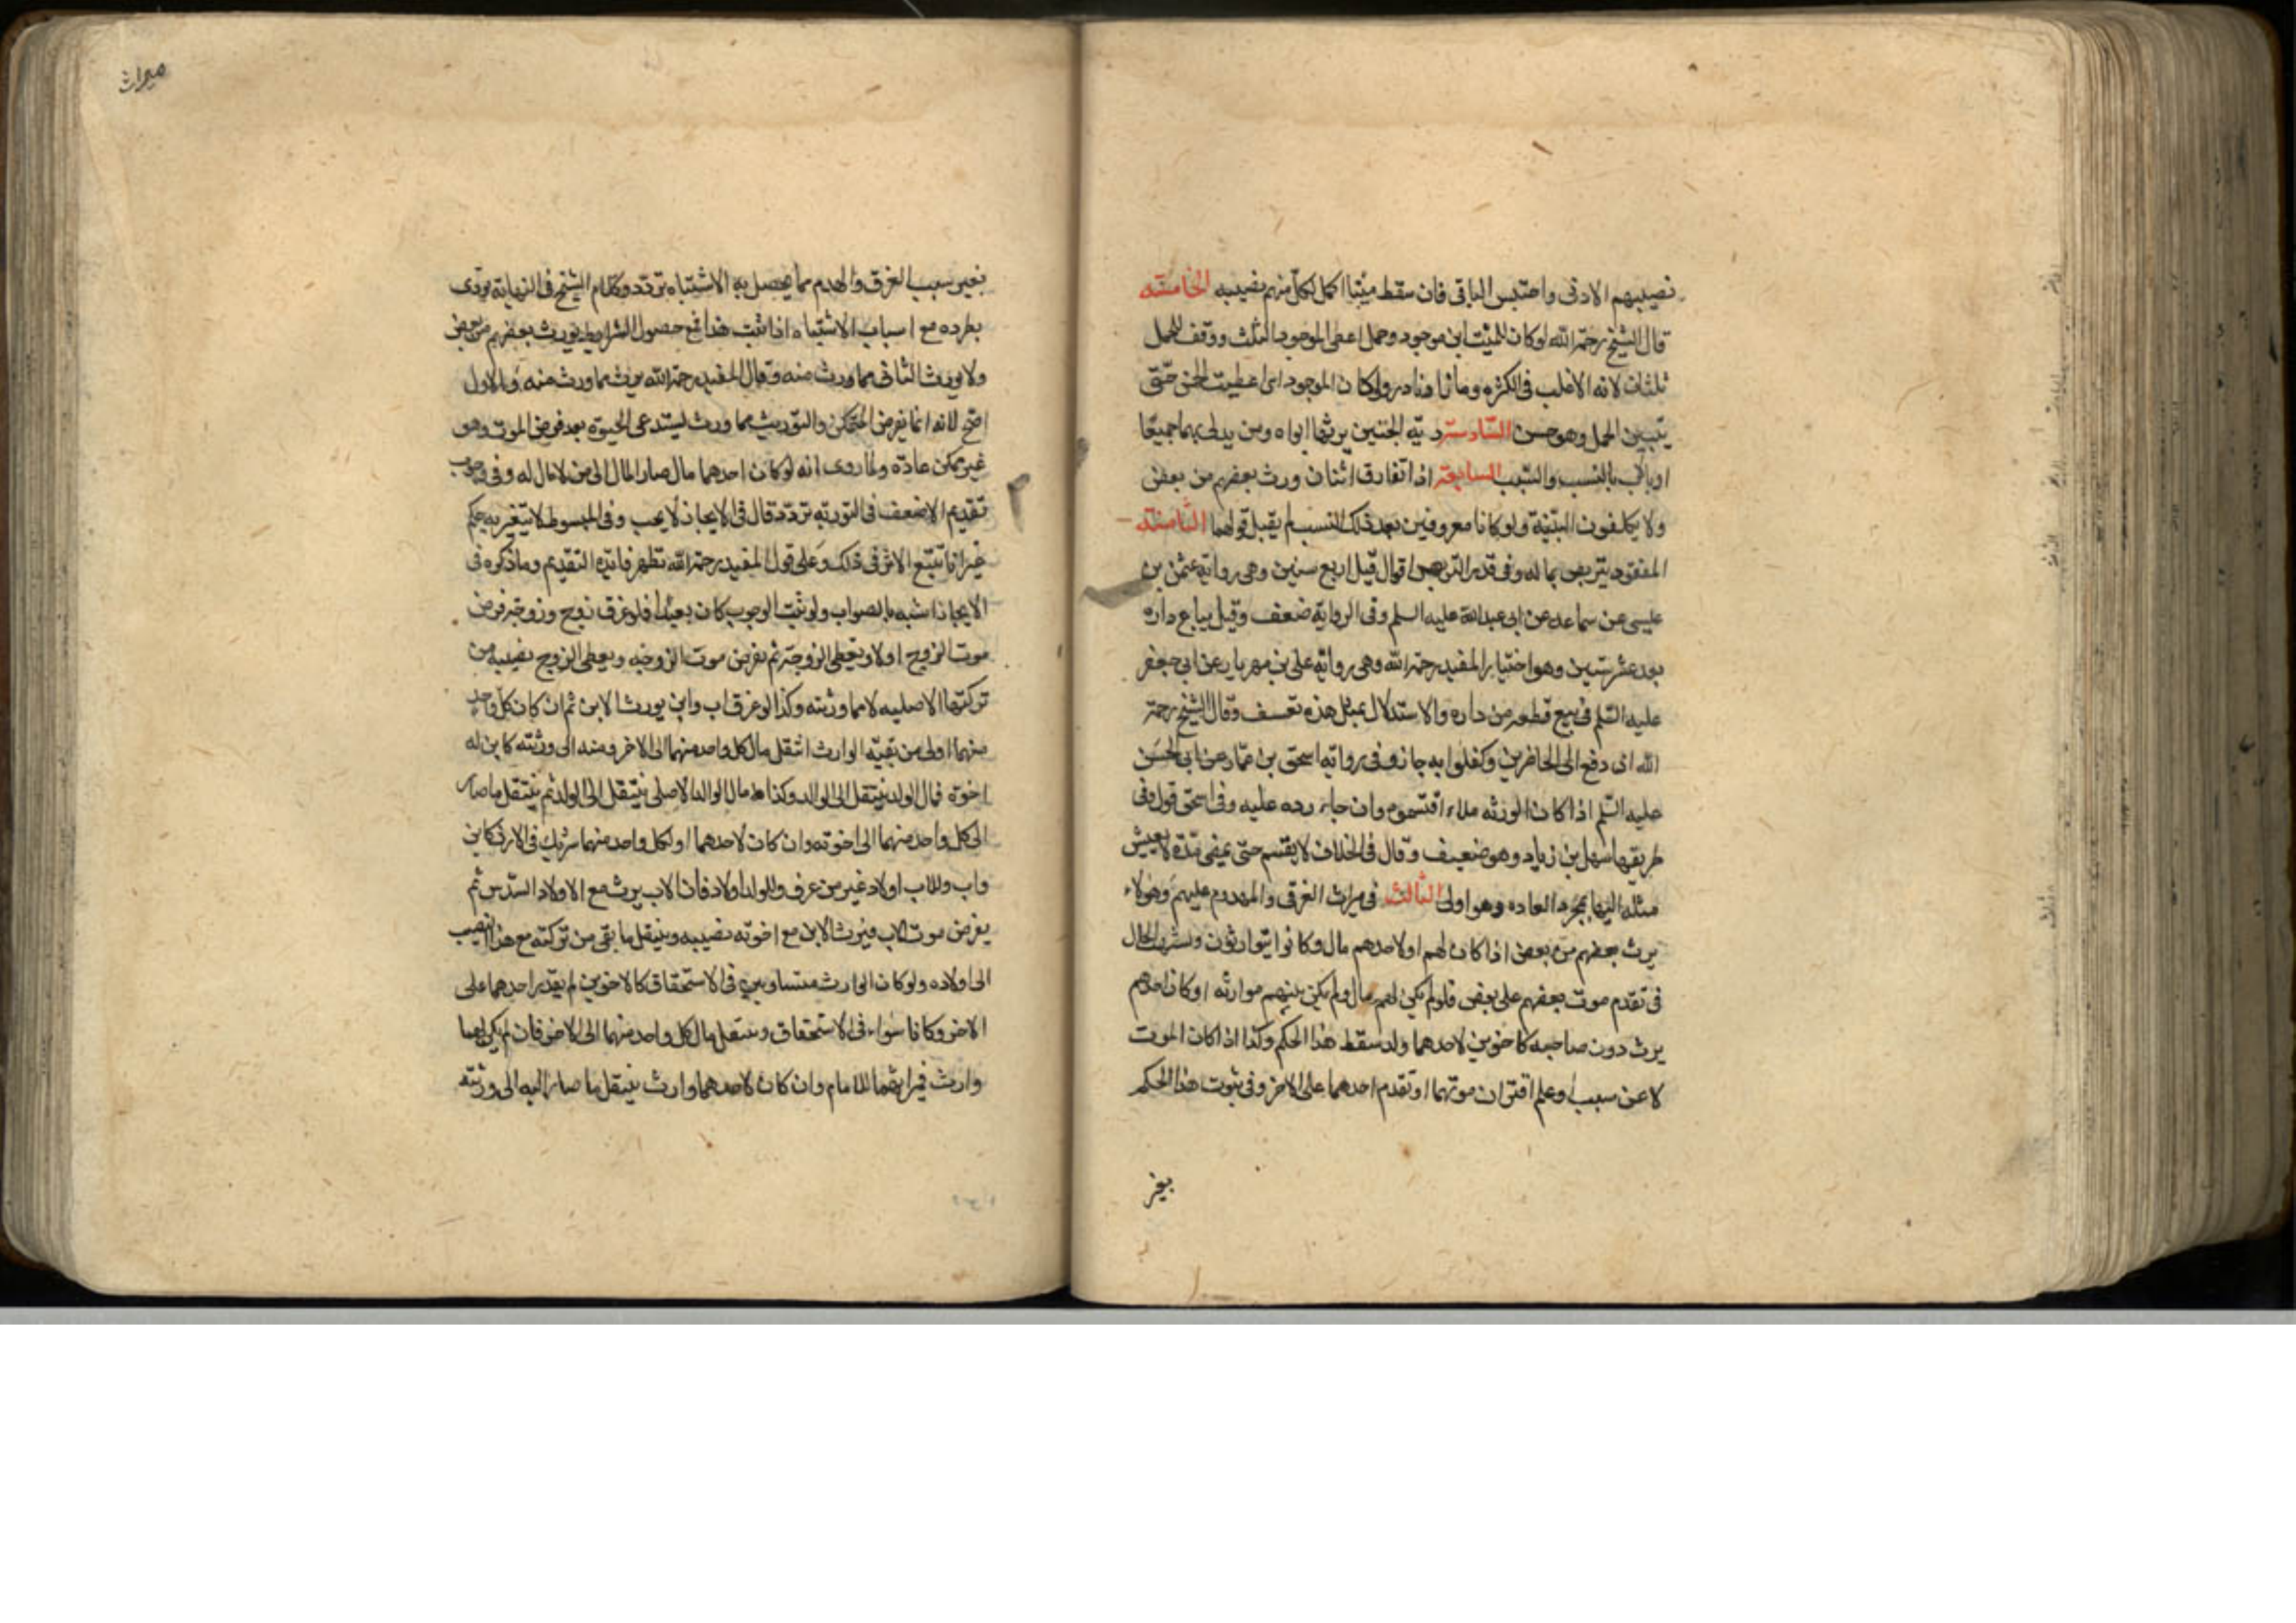 نصيبهم الادنى واحتبس الباقى فان سقط ميتا اكمل لكل منهم نصيبه الخامسة
قال الشيخ رحمه الله لو كان للميت ابن موجود وحمل اعطى الموجود الثلث ووقف للحمل
ثلثان لانه الاغلب فى الكثره وما زاد نادر ولو كان الموجود انثى اعطيت الخمس حتى
يتبين الحمل وهو حسن السادسة دية الجنين يرثها ابواه ومن يدلى بهما جميعا
او بالاب بالنسب والسبب السابعة اذا تعارف اثنان ورث بعضهم من بعض
ولا يكلفون البينة ولو كانا معروفين بعد ذلك النسب لم يقبل قولهما الثامنة
المفقود يتربص بماله وفى قدر التربص اقوال قيل اربع سنين وهى رواية عثمن بن
عليسى عن سماعه عن ابى عبدالله عليه السلم وفى الرواية ضعف وقيل يباع داره
بعد عشر سنين وهو اختيار المفيد رحمه الله وهى رواية على بن مهزيار عن ابى جعفر
عليه السلم فى بيع قطعه من داره والاستدلال بمثل هذه تعسف وقال الشيخ رحمه
الله ان دفع الى الحاضرين وكفلوا به جاز وفى رواية اسحق بن عمار عن ابى الحسن
عليه السلم اذا كان الورثه ملاء اقتسموه وان جاء رده عليه وفى اسحق قول وفى
طريقها سهل بن زياد وهو ضعيف وقال فى الخلاف لا يقسم حتى يمضى مدة لا يعيش
مثله اليها بمجرد العاده وهو اولى الثالث فى ميراث الغرقى والمهدوم عليهم وهؤلاء
يرث بعضهم من بعض اذا كان لهم او لاحدهم مال وكانوا يتوارثون واشتبهت الحال
فى تقدم موت بعضهم على بعض فلو لم يكن لهم مال او لم يكن بينهم موارثه او كان احدهم
يرث دون صاحبه كاخوين لاحدهما ولد سقط هذا الحكم وكذا اذا كان الموت
لا عن سبب او علم اقتران موتهما او تقدم احدهما على الاخر وفى ثبوت هذا الحكم
بغير
ميراث
بغير سبب الغرق والهدم مما يحصل به الاشتباه تردد وكلام الشيخ فى النهاية يؤذن
بطرده مع اسباب الاشتباه اذا ثبت هذا فمع حصول الشرايط يورث بعضهم من بعض
ولا يورث الثانى مما ورث منه وقال المفيد رحمه الله يرث مما ورث منه والاول
اصح لانه انما يفرض الممكن والتوريث مما ورث يستدعى الحيوة بعد فرض الموت وهو
غير ممكن عادة ولما روى انه لو كان احدهما مال صار المال الى من لا مال له وفى وجوب
تقديم الاضعف فى التوريه تردد قال فى الايجاز لا يجب وفى المبسوط لا يتغير به حكم
غير انا نتبع الاثر فى ذلك وعلى قول المفيد رحمه الله تظهر فايدة التقديم وما ذكره فى
الايجاز اشبه بالصواب ولو ثبت الوجوب كان تعبدا فلو غرق زوج وزوجة فرض
موت الزوج اولا ويعطى الزوجة ثم يفرض موت الزوجه ويعطى الزوج نصيبه من
تركتها الاصليه لا مما ورثته وكذا لو غرق اب وابن يورث الابن ثم ان كان كل واحد
منهما اولى من بقية الوارث انتقل مال كل واحد منهما الى الاخر ومنه الى ورثته كابن له
اخوة فمال الولد ينتقل الى الوالد وكذا مال الوالد الاصلى ينتقل الى الولد ثم ينتقل ما صار
الى كل واحد منهما الى اخوته وان كان لاحدهما او لكل واحد منهما شريك فى الارث كابن
واب وللاب اولاد غير من غرق وللولد اولاد فان الاب يرث مع الاولاد السدس ثم
يفرض موت الاب فيرث الابن مع اخوته نصيبه وينتقل ما بقى من تركته مع هذا النصيب
الى اولاده ولو كان الوارث متساويين فى الاستحقاق كالاخوين لم يقدم احدهما على
الاخر وكانا سواء فى الاستحقاق وينتقل مال كل واحد منهما الى الاخر فان لم يكن لهما
وارث فميراثهما للامام وان كان لاحدهما وارث ينتقل ما صار اليه الى ورثته